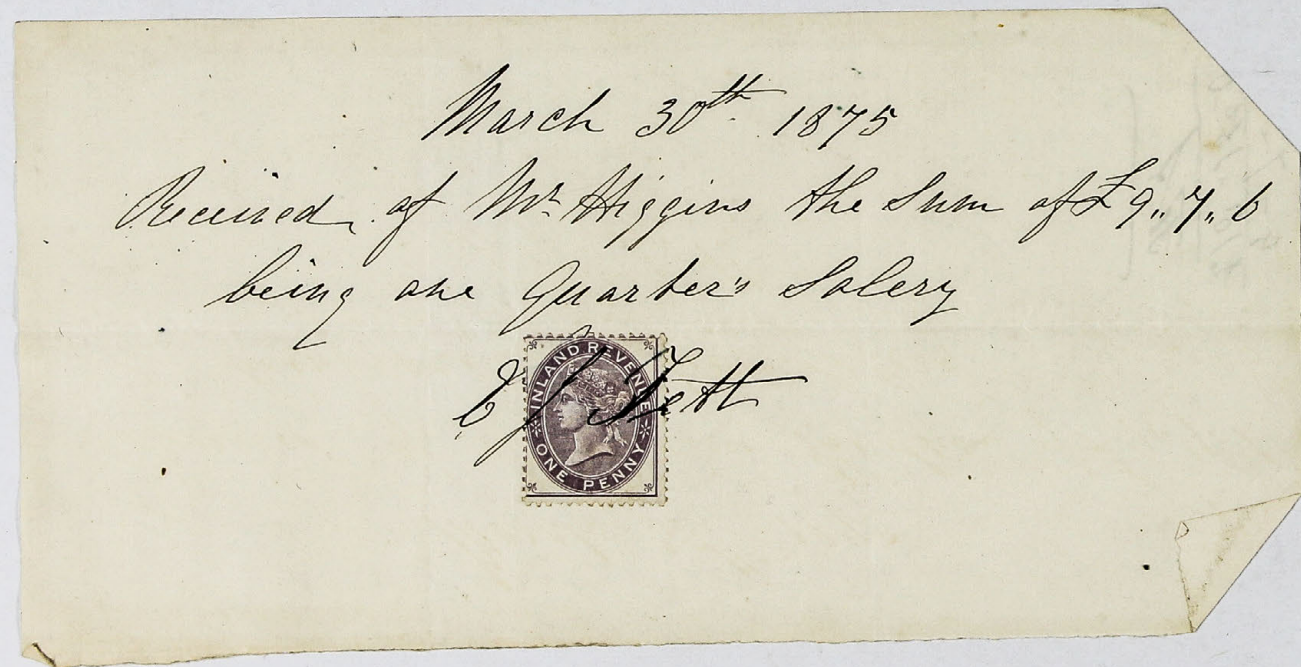 March 30th 1875
Received of Mr Higgins the Sum of £9,, 7,, 6
being one Quarter's Salery
C J Fett
INLAND REVENUE
ONE PENNY